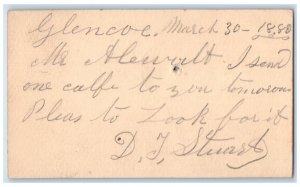 Glencoe, March 30-1880
Mr Alewilt I send
one calfe to you tomorow
Pleas to Look for it
D, F, Stuart